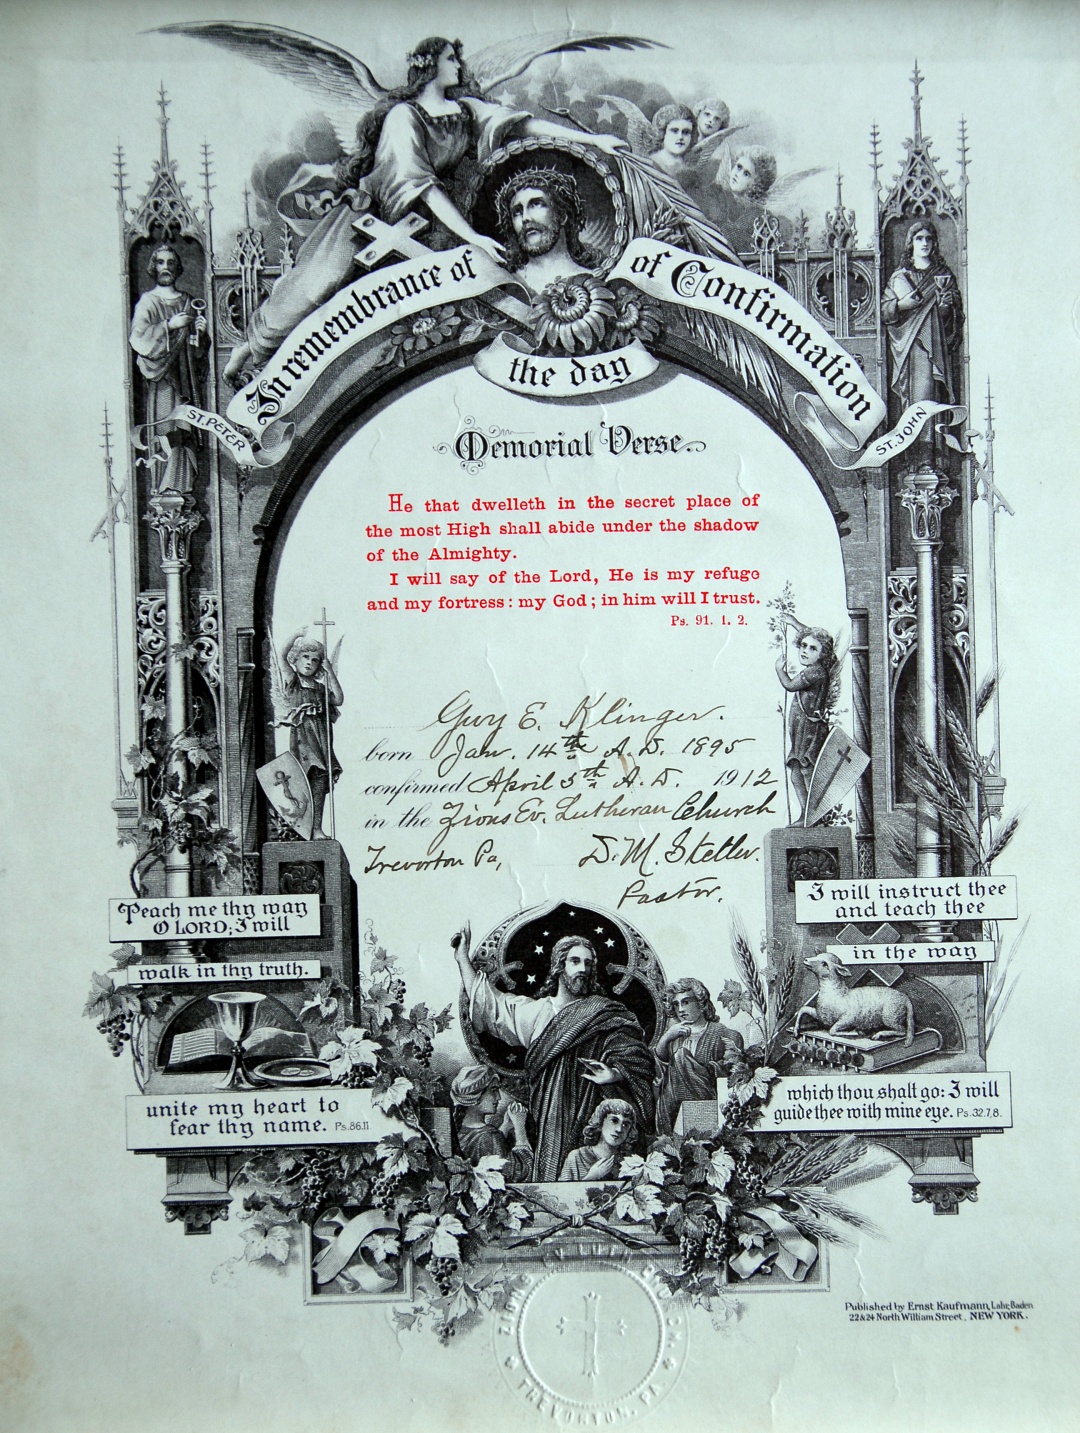 In remembrance of
of Confirmation
the day
ST. PETER
ST. JOHN
Memorial Verse.
He that dwelleth in the secret place of
the most High shall abide under the shadow
of the Almighty.
I will say of the Lord, He is my refuge
and my fortress: my God; in him will I trust.
Ps. 91. 1. 2.
Guy E. Klinger.
born Jan. 14th A. D. 1895
confirmed April 5th A. D. 1912
in the Zions Ev. Lutheran Church
Trevorton Pa, D. M. Stetler.
Pastor.
Teach me thy way
O LORD; I will
walk in thy truth.
unite my heart to
fear thy name. Ps.86.11.
I will instruct thee
and teach thee
in the way
which thou shalt go: I will
guide thee with mine eye. Ps.32.7,8.
Published by Ernst Kaufmann, Lahr, Baden
22&24 North William Street, NEW YORK.
ZIONS EV. LUTHERAN CH.
TREVORTON, PA